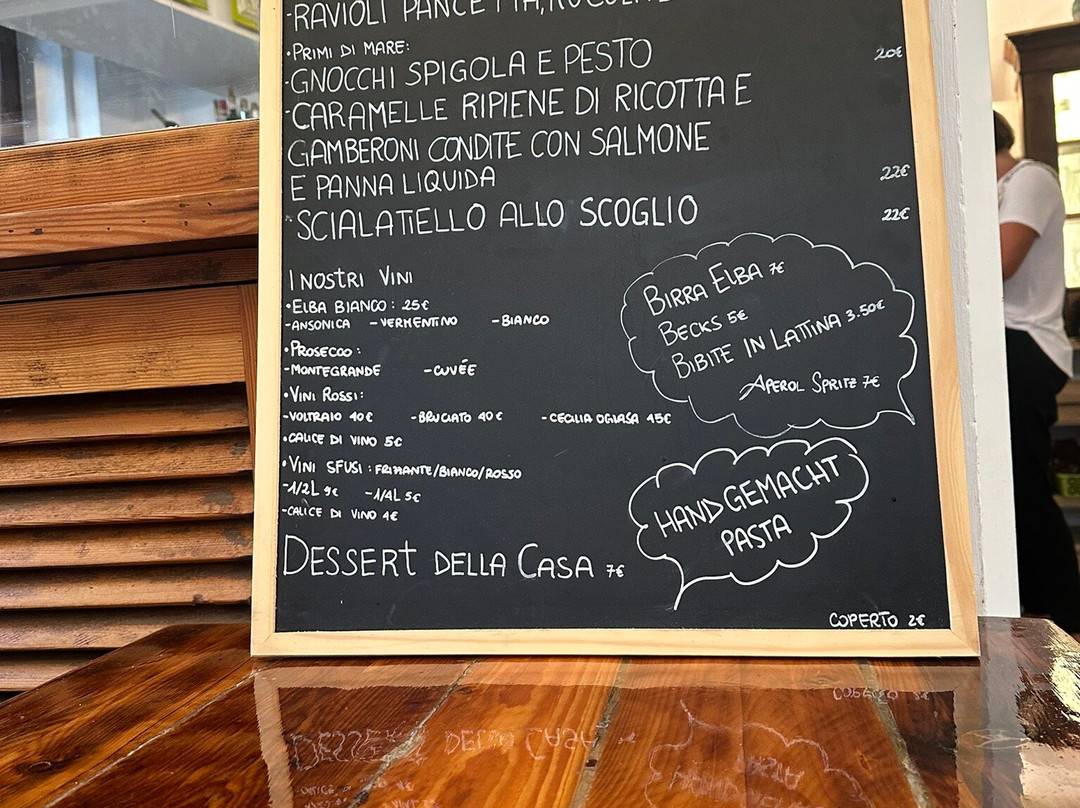 -RAVIOLI PANCETTA, RUCOLA E
•PRIMI DI MARE:
-GNOCCHI SPIGOLA E PESTO 20€
-CARAMELLE RIPIENE DI RICOTTA E
GAMBERONI CONDITE CON SALMONE
E PANNA LIQUIDA 22€
-SCIALATIELLO ALLO SCOGLIO 22€
I NOSTRI VINI
•ELBA BIANCO: 25€
-ANSONICA -VERMENTINO -BIANCO
•PROSECCO:
-MONTEGRANDE -CUVÉE
•VINI ROSSI:
-VOLTRAIO 40€ -BRUCIATO 40€ -CECILIA OGLIASA 45€
•CALICE DI VINO 5€
•VINI SFUSI: FRIZZANTE/BIANCO/ROSSO
-1/2L 9€ -1/4L 5€
-CALICE DI VINO 4€
DESSERT DELLA CASA 7€
BIRRA ELBA 7€
BECKS 5€
BIBITE IN LATTINA 3.50€
APEROL SPRITZ 7€
HANDGEMACHT
PASTA
COPERTO 2€